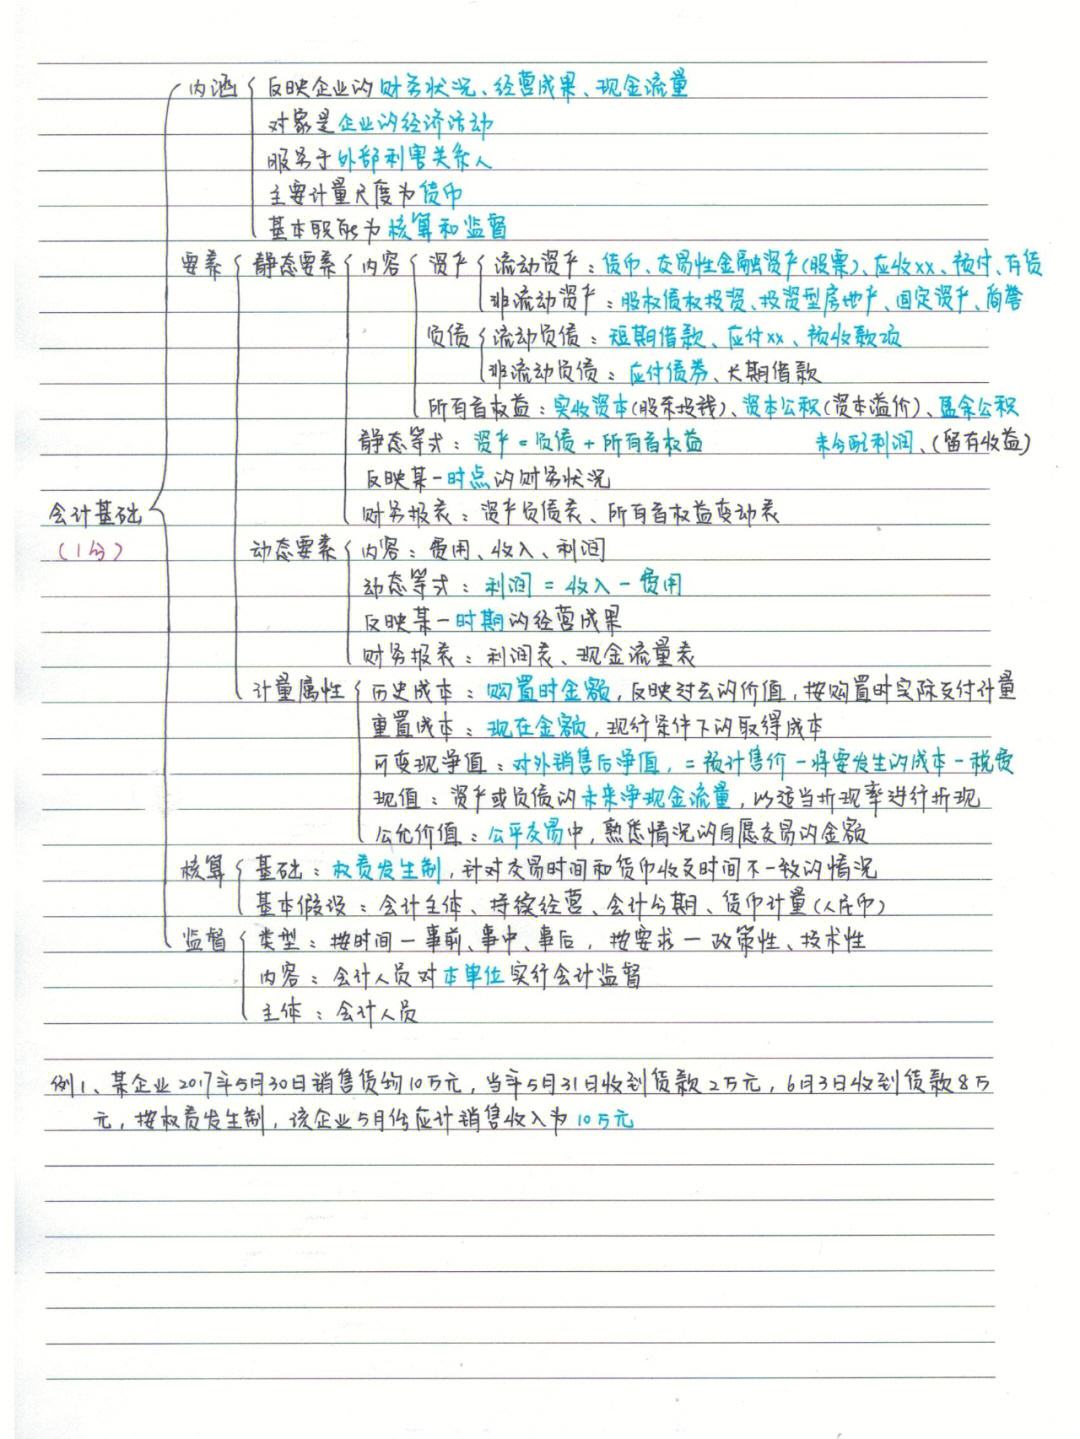 内涵 反映企业的财务状况、经营成果、现金流量
对象是企业的经济活动
服务于外部利害关系人
主要计量尺度为货币
基本职能为核算和监督
要素 静态要素 内容 资产 流动资产：货币、交易性金融资产(股票)、应收xx、预付、存货
非流动资产：股权债权投资、投资型房地产、固定资产、商誉
负债 流动负债：短期借款、应付xx、预收款项
非流动负债：应付债券、长期借款
所有者权益：实收资本(股东投钱)、资本公积(资本溢价)、盈余公积
静态等式：资产=负债+所有者权益 未分配利润、(留存收益)
反映某一时点的财务状况
会计基础 财务报表：资产负债表、所有者权益变动表
(1分) 动态要素 内容：费用、收入、利润
动态等式：利润=收入-费用
反映某一时期的经营成果
财务报表：利润表、现金流量表
计量属性 历史成本：购置时金额，反映过去的价值，按购置时实际支付计量
重置成本：现在金额，现行条件下的取得成本
可变现净值：对外销售后净值，=预计售价-将要发生的成本-税费
现值：资产或负债的未来净现金流量，以适当折现率进行折现
公允价值：公平交易中，熟悉情况的自愿交易的金额
核算 基础：权责发生制，针对交易时间和货币收支时间不一致的情况
基本假设：会计主体、持续经营、会计分期、货币计量(人民币)
监督 类型：按时间-事前、事中、事后，按要求-政策性、技术性
内容：会计人员对本单位实行会计监督
主体：会计人员
例1、某企业2017年5月30日销售货物10万元，当年5月31日收到货款2万元，6月3日收到货款8万
元，按权责发生制，该企业5月份应计销售收入为10万元